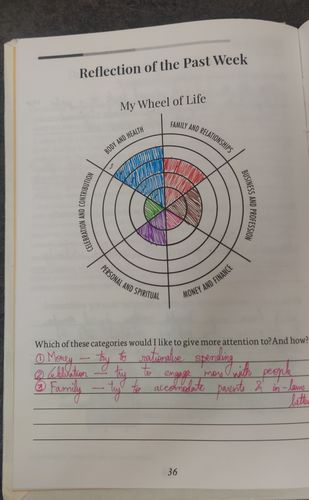 Reflection of the Past Week
My Wheel of Life
BODY AND HEALTH
FAMILY AND RELATIONSHIPS
CELEBRATION AND CONTRIBUTION
BUSINESS AND PROFESSION
PERSONAL AND SPIRITUAL
MONEY AND FINANCE
Which of these categories would I like to give more attention to? And how?
① Money — try to rationalise spending
② Celebration — try to engage more with people
③ Family — try to accomodate parents & in-laws
better
36